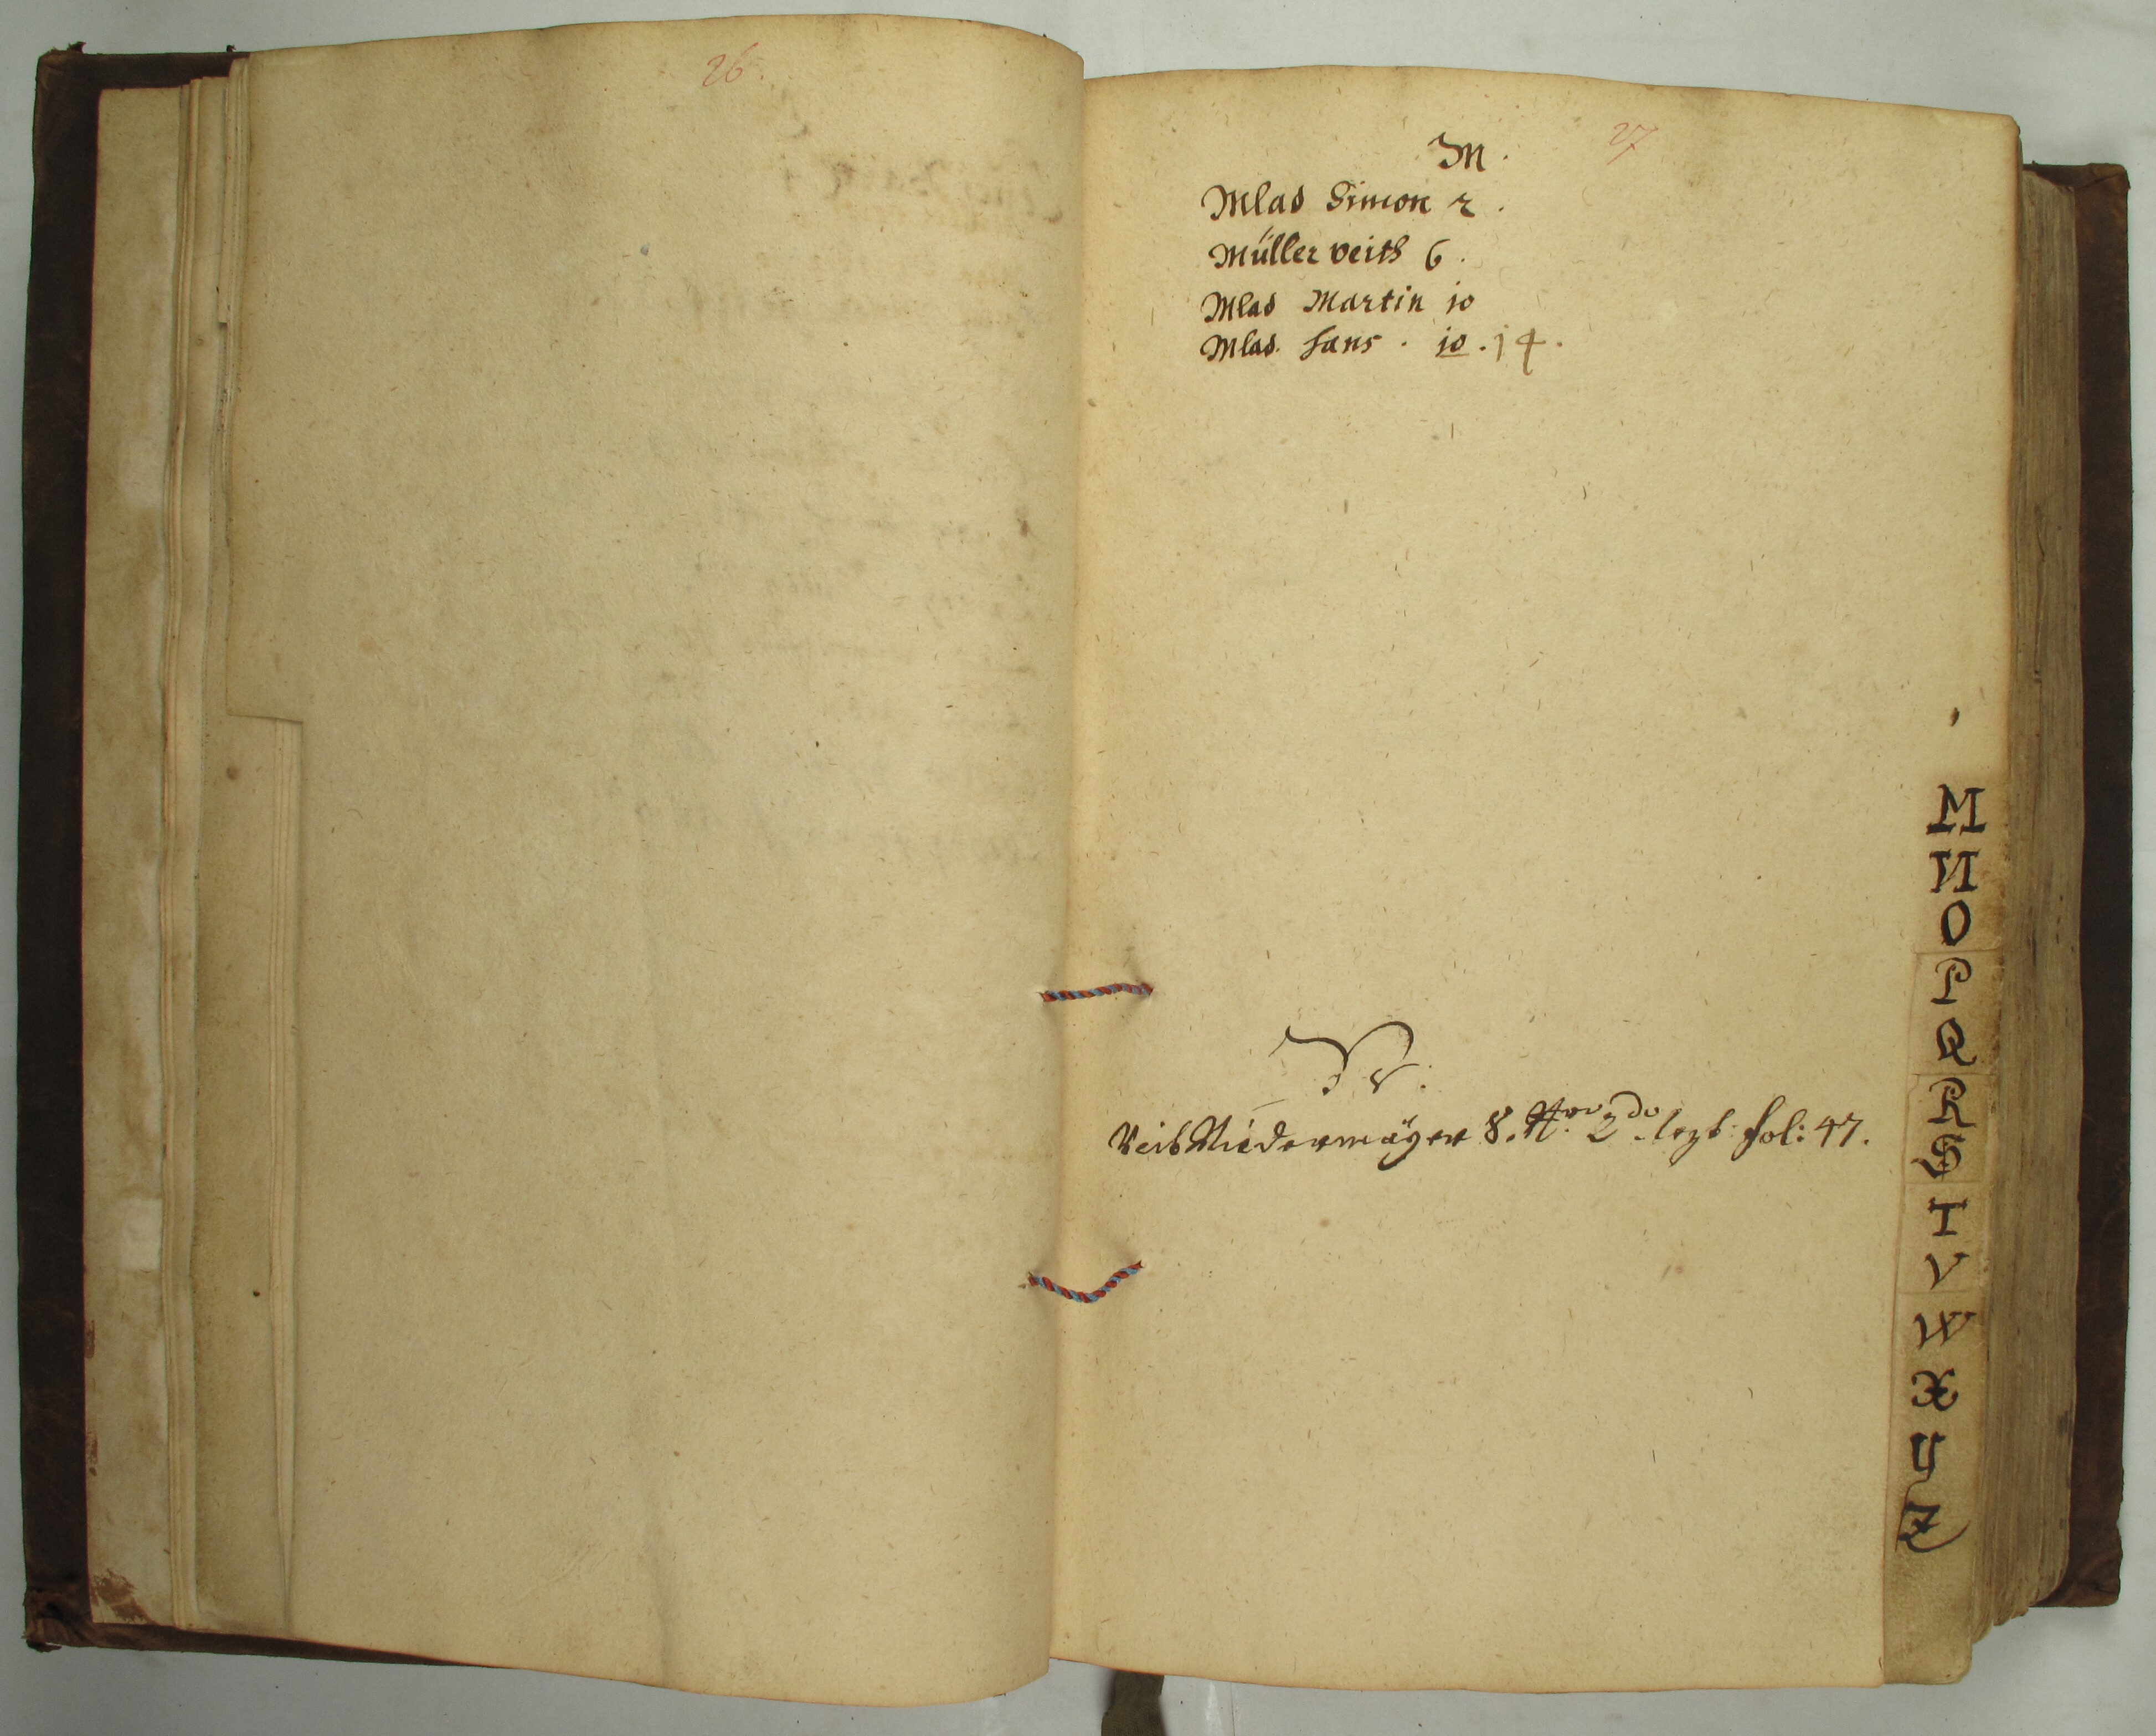 26.
27
M.
Mlad Simon 2.
Müller veith 6.
Mlad Martin 10
Mlad. Hans. 10. 14.
N.
Veit Niedermäyer 8. 2do. lezt: fol: 47.
M
N
O
P
Q
R
S
T
V
W
X
Y
Z